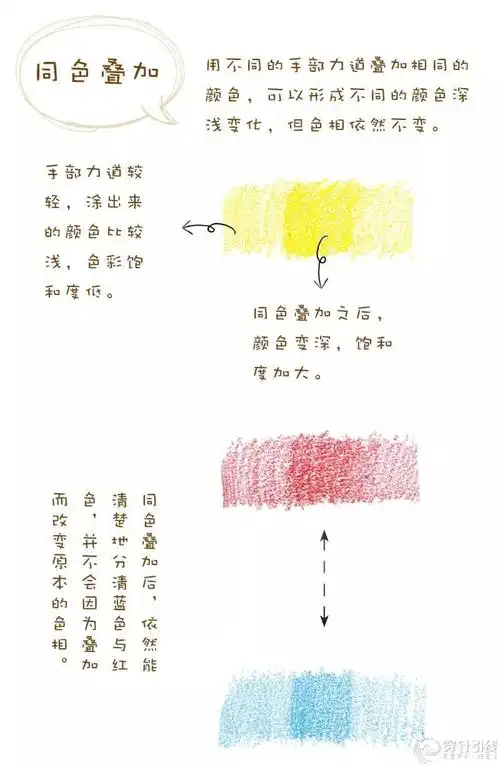 同色叠加
用不同的手部力道叠加相同的
颜色，可以形成不同的颜色深
浅变化，但色相依然不变。
手部力道较
轻，涂出来
的颜色比较
浅，色彩饱
和度低。
同色叠加之后，
颜色变深，饱和
度加大。
同色叠加后，依然能
清楚地分清蓝色与红
色，并不会因为叠加
而改变原本的色相。